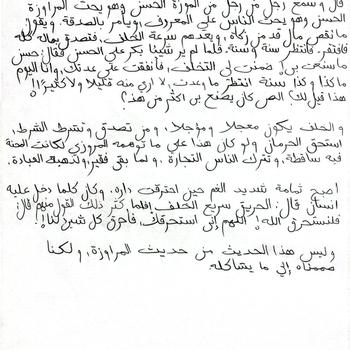 قال وسمع رجل من رجل من المراوزة الحسن وهو يحث المراوزة
الحسن وهو يحث الناس على المعروف، ويأمر بالصدقة. ويقول
ما نقص مال قط من زكاة، ويعدهم سرعة الخلف، فتصدق بماله كله
فافتقر. فانتظر سنة وسنة. فلما لم ير شيئا بكر على الحسن فقال: حسن
ما صنعت بي! ضمنت لي الخلف، فأنفقت على عدتك، وأنا اليوم
مذ كذا وكذا سنة انتظر ما وعدت، لا أرى منه قليلا ولا كثيرا!
هذا يحل لك؟ اللص كان يصنع بي أكثر من هذا؟
والخلف يكون معجلا ومؤجلا، ومن تصدق وتشرط الشرط،
استحق الحرمان ولو كان هذا على ما توهمه المروزي لكانت المحنة
فيه ساقطة، ولترك الناس التجارة، ولما بقي فقير، ولذهبت العبادة.
اصبح ثمامة شديد الغم حين احترقت داره. وكان كلما دخل عليه
انسان قال: الحريق سريع الخلف، فلما كثر ذلك القول منهم قال:
فلنستحرق الله! اللهم إني استحرقك، فأحرق كل شيء لنا!
وليس هذا الحديث من حديث المراوزة، ولكنا
ضممناه إلى ما يشاكله.